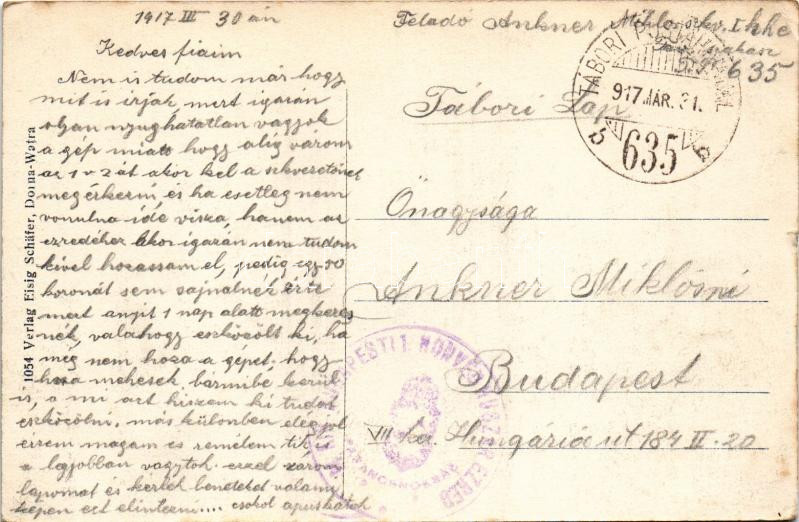 1917 III 30 án
Kedves fiaim
Nem is tudom már hogy
mit is irjak, mert igazán
olyan nyughatatlan vagyok
a gép miatt hogy alig várom
az 1 v 2 át akor kel a
megérkezni, és ha esetleg nem
vonulna ide visza, hanem az
ezredéhez akor igazán nem tudom
kivel hozassam el, pedig egy 50
koronát sem sajnálnék érte
mert anyit 1 nap alatt megkeres
nék, valahogy eszközölt ki, ha
még nem hozza a gépet, hogy
hoza mehesek bármibe kerül
is, a mi azt hiszem ki tudod
eszközölni. más különben elég jol
érzem magam és remélem ti
a legjobban vagytok ezzel zárom
lapomat és kérlek beneteket valami
képen ezt elintézni.... csokol apuskátok
1054 Verlag Eisig Schäfer, Dorna-Watra
Feladó Ankner Miklos I hke
635
TÁBORI
917 MÁR. 31.
635
Tábori Lap
Önagysága
Ankner Miklósné
Budapest
VII ker. Hungária ut 184 II. 20
BUDAPESTI 1. HONVÉD HUSZÁR EZRED